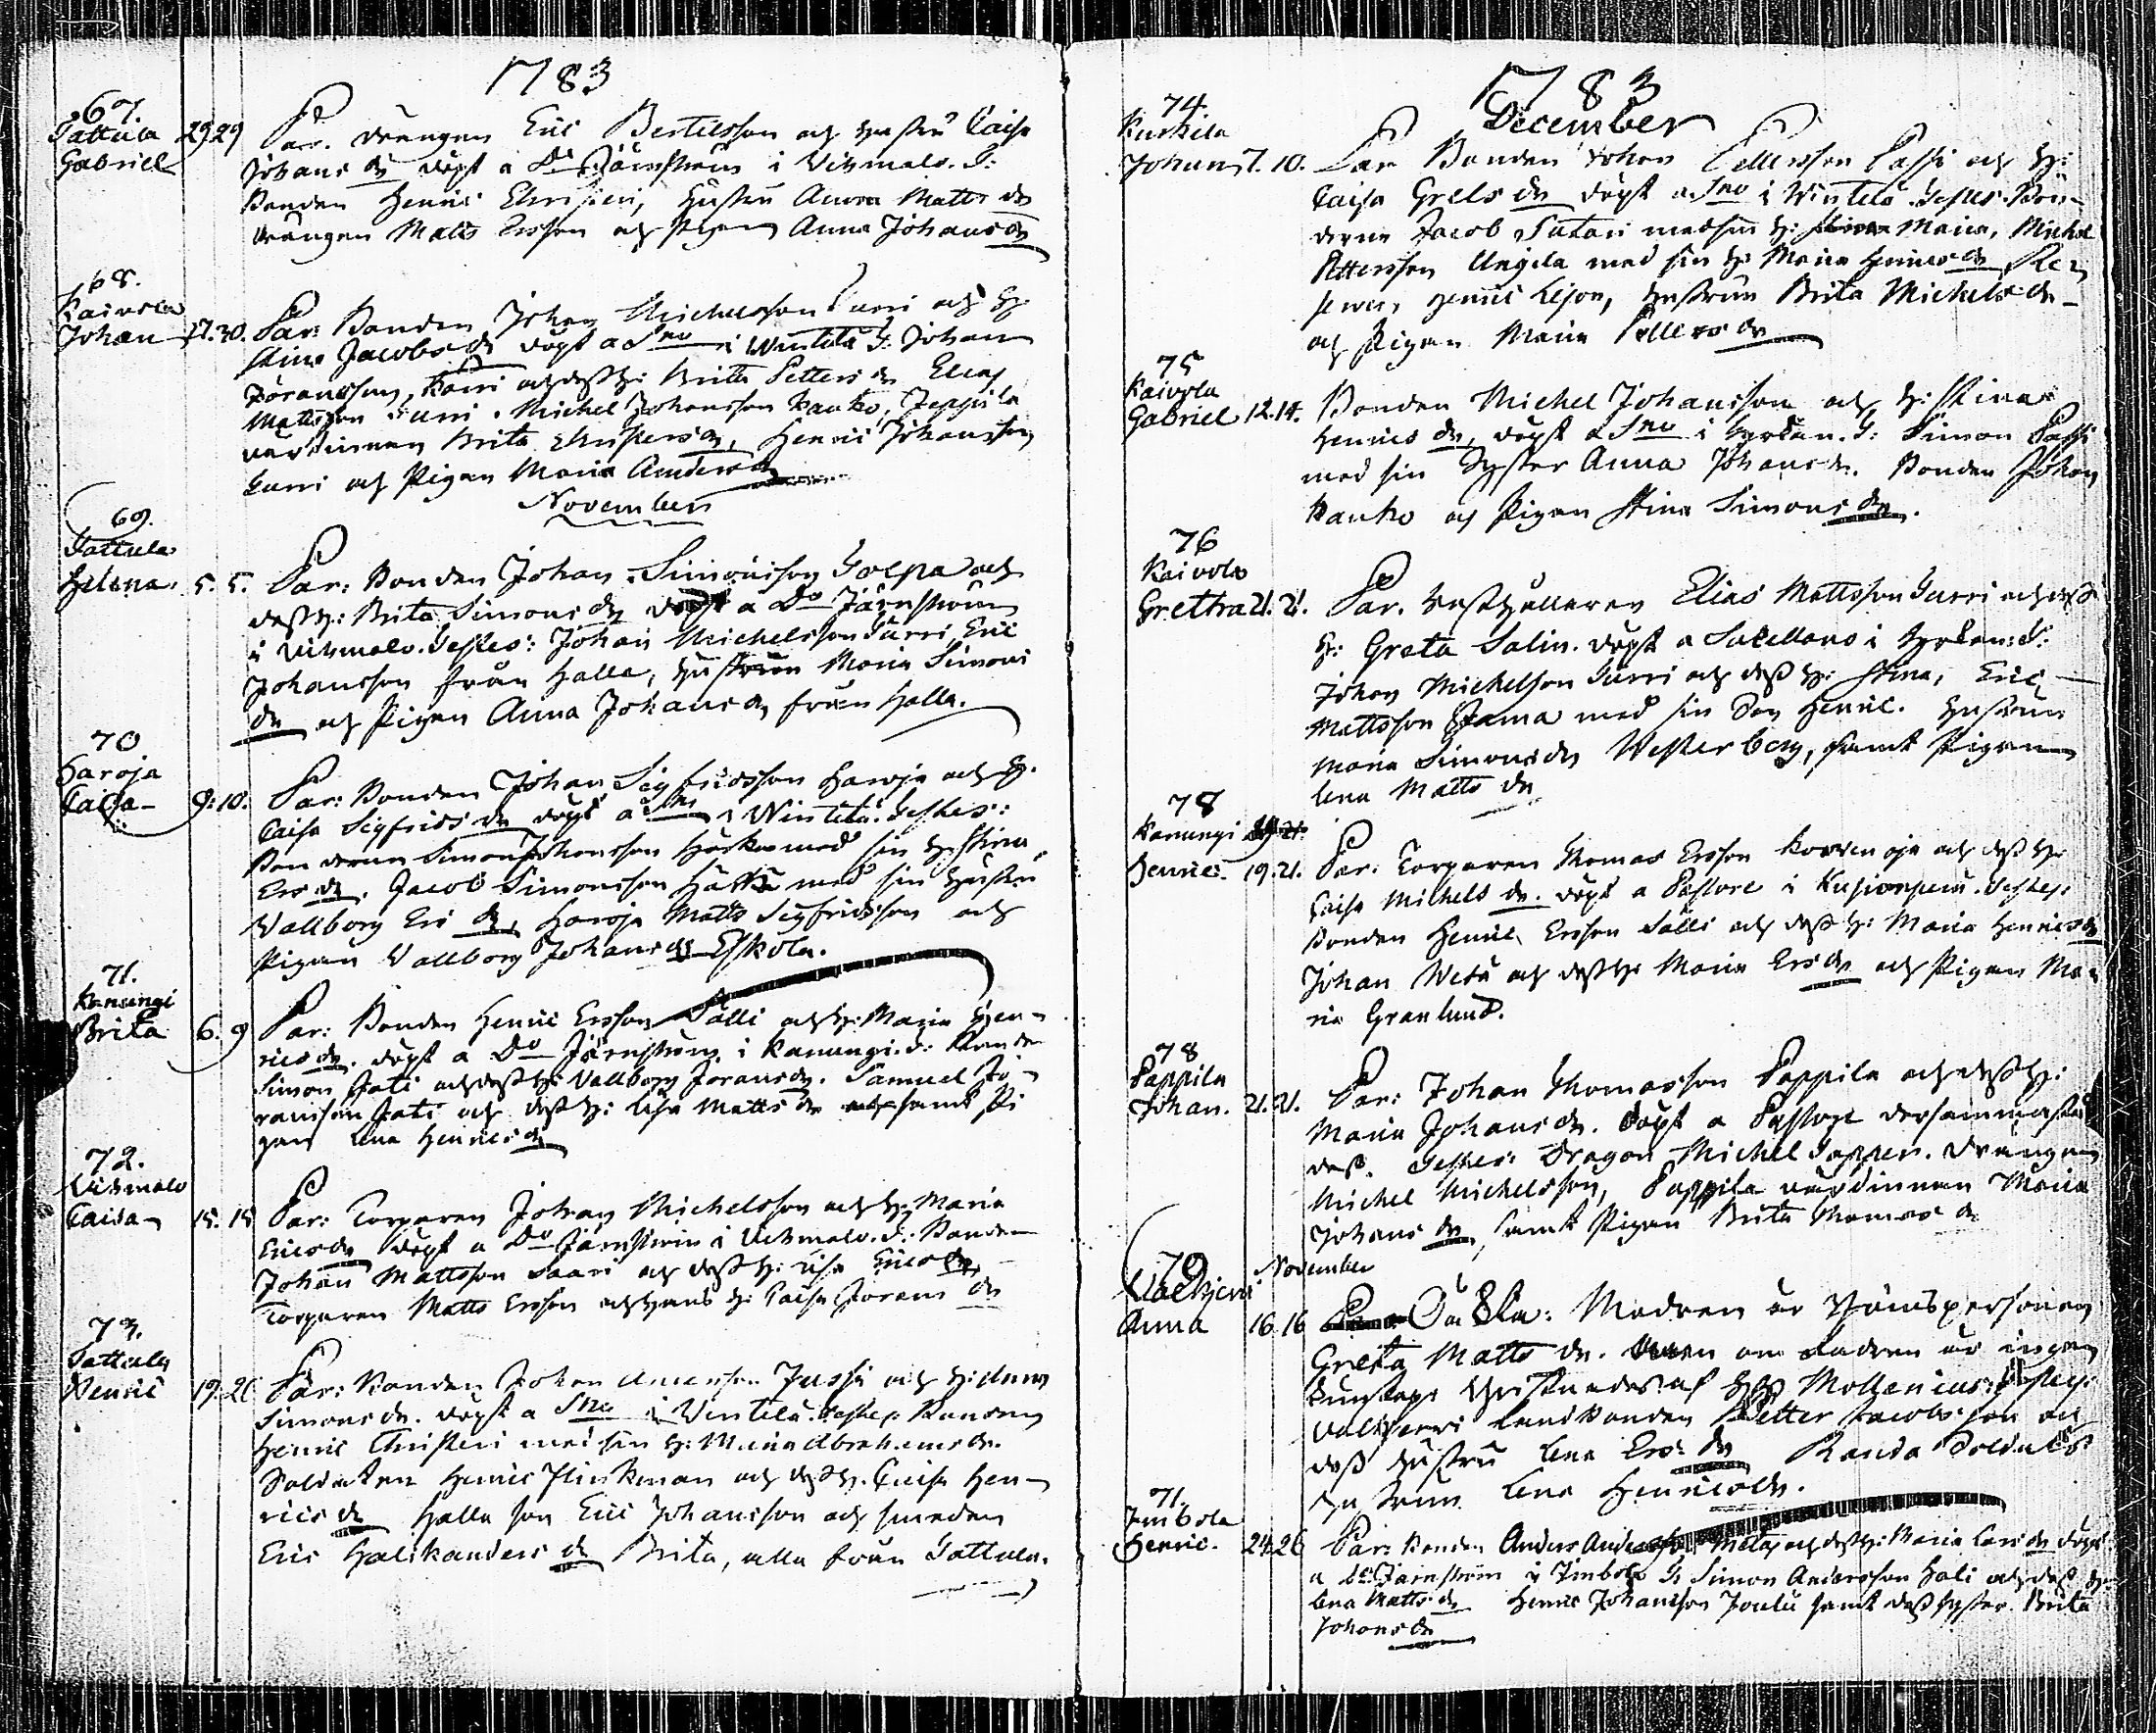 1783
67.
Tattula
Gabriel
29 29
Par. drengen Eric Bertilsson och hustru Caisa
Johans dr döpt a Dno Järnström i Vihmalo. T:
Bonden Henric Christeri, hustru Anna Matts dr
drängen Matts Ersson och Pigan Anna Johans dr
68.
Kaivola
Johan
27. 30.
Par: Bonden Johan Michelsson Jurri och H:
Stina Jacobs dr döpt a Sno i Wintela T: Johan
Joransson, Kärri och dess H: Brita Petters dr Elias
Mattsson Jurri. Michel Johansson Kauko, Seppila
värdinnan Brita Christers dr, Henric Johansson
Jurri och Pigan Maria Anders dr
November
69.
Tattula
Helena.
5. 5.
Par: Bonden Johan Simonsson Soepa och
dess H: Brita Simons dr döpt a Do Järnström
i Vihmalo. Testes: Johan Michelsson Jurri, Eric
Johansson från Halla, hustrun Maria Simons
dr och Pigan Anna Johans dr från Halla.
70
Haroja
Caisa
9. 10.
Par: Bonden Johan Sigfridsson Haroja och H.
Caisa Sigfrids dr döpt a Sno i Wintela. Testes:
Bonderna Simon Johansson med sin H: Stina
Ers dr. Jacob Simonsson med sin Hustru
Vallborg Ers dr, Haroja Matts Sigfridsson och
Pigan Vallborg Johans dr Eskola.
71.
Kanungi
Brita
6. 9
Par: Bonden Henric Ersson Sälli och H: Maria Hen-
rics dr. döpt a Do Järnström i Kanungi. T: Bonden
Simon Jati och dess H: Vallborg Jorans dr. Samuel Jo-
ransson Jati och dess H: Lisa Matts dr samt Pi
gan Lena Henrics dr
72.
Vihmalo
Caisa
15. 15
Par: Torparen Johan Michelsson och H: Maria
Erics dr döpt a Do Järnström i Vihmalo. T: Bonden
Johan Mattsson Saari och dess H: Lisa Erics dr,
Torparen Matts Ersson och hans H: Caisa Jorans dr
73.
Tattula
Henric
19. 21
Par: Bonden Johan Andersson Jussi och H: Anna
Simons dr. döpt a Sno i Vintela. Testes: Bonden
Henric Christeri med sin H: Maria Abrahams dr.
Soldaten Henric Flinkman och dess H. Caisa Hen-
rics dr Halla son Eric Johansson och smeden
Eric Galikanders dr Brita, alla från Tattula.
1783
December
74.
Kurkila
Johan
7. 10.
Par Bonden Johan Pettersson Passi och H:
Caisa Grels dr döpt a Sno i Wintela. Testes. Bön-
derna Jacob Sutari med sin H: Maria, Michel
Pettersson Ungila med sin H: Maria Henrics dr,
Henric Lejon, hustrun Brita Michels dr
och Pigan Maria Petters dr
75
Kaivola
Gabriel
12. 14.
Bonden Michel Johansson och H: Stina
Henrics dr, döpt a Sno i Kyrkan. T: Simon Passi
med sin Syster Anna Johans dr. Bonden Johan
Kauko och Pigan Stina Simons dr.
76
Kaivola
Gretha
21. 21.
Par. Elias Mattsson Jurri och dess
H: Greta Salin. döpt a Sacellano i Kyrkan: T:
Johan Michelsson Jurri och dess H: Stina, Eric
Mattsson Stama med sin Son Henric. Hustrun
Maria Simons dr Westerberg, samt Pigan
Lena Matts dr
78
Kanungi
Henric
19. 21.
Par: Torparen Thomas Ersson Korvenoja och dess H:
Caisa Michels dr. döpt a Pastore i Kusionpeu. Testes:
Bonden Henric Ersson Sälli och dess H: Maria Henrics dr
Johan Wetu och dess H: Maria Ers dr och Pigan Ma-
ria Granlund.
78
Pappila
Johan.
21. 21.
Par: Johan Thomasson Pappila och dess H:
Maria Johans dr. döpt a Pastore dersammastä-
des. Testes: Dragon Michel Sapper. Drängen
Michel Michelsson, Pappila värdinnan Maria
Johans dr, samt Pigan Brita Thomas dr
November
79
Valkjervi
Anna
16 16
Oäkta: Modren är Qvinspersonen
Greta Matts dr. men om Fadren är ingen
kunskap. Christnades af Mollenius. Testes:
Valkjervi landbonden Petter Jacobsson och
dess hustru Lena Ers dr Randa Soldats
hustrun Lena Henrics dr.
71.
Jmbola
Henric.
24 26
Par: Bonden Anders Andersson Mela och dess H: Maria Lars dr döpt
a Do Järnström i Jmbola T: Simon Andersson Hali och dess H:
Lena Matts dr Henric Johansson Joulu samt dess Syster Brita
Johans dr